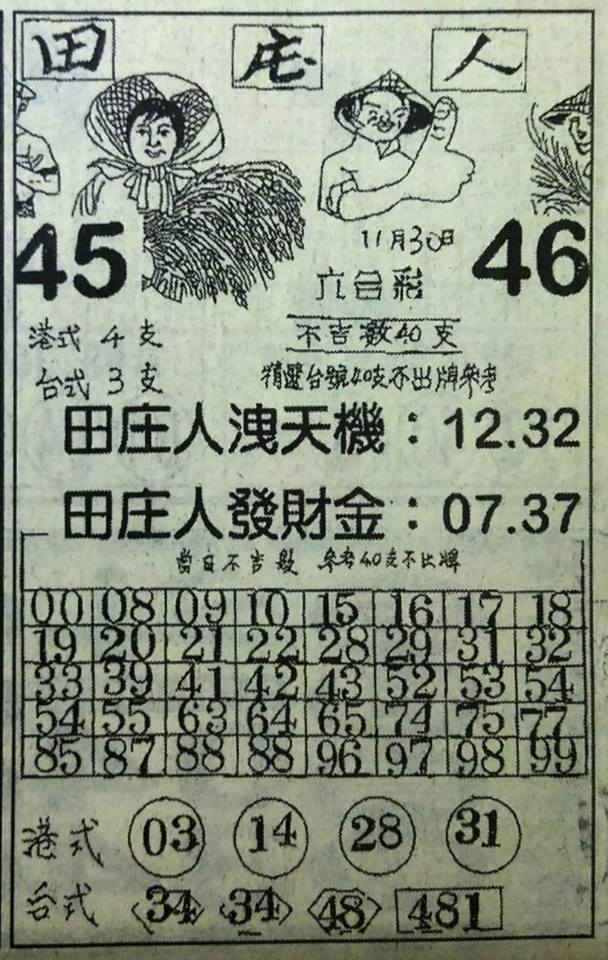 田庄人
11月30日
45 六合彩 46
港式 4 支 不吉數40支
台式 3 支 精選台號40支不出牌參考
田庄人洩天機：12.32
田庄人發財金：07.37
當日不吉數 參考40支不出牌
00 08 09 10 15 16 17 18
19 20 21 22 28 29 31 32
33 39 41 42 43 52 53 54
54 55 63 64 65 74 75 77
85 87 88 88 96 97 98 99
港式 03 14 28 31
台式 34 34 48 481